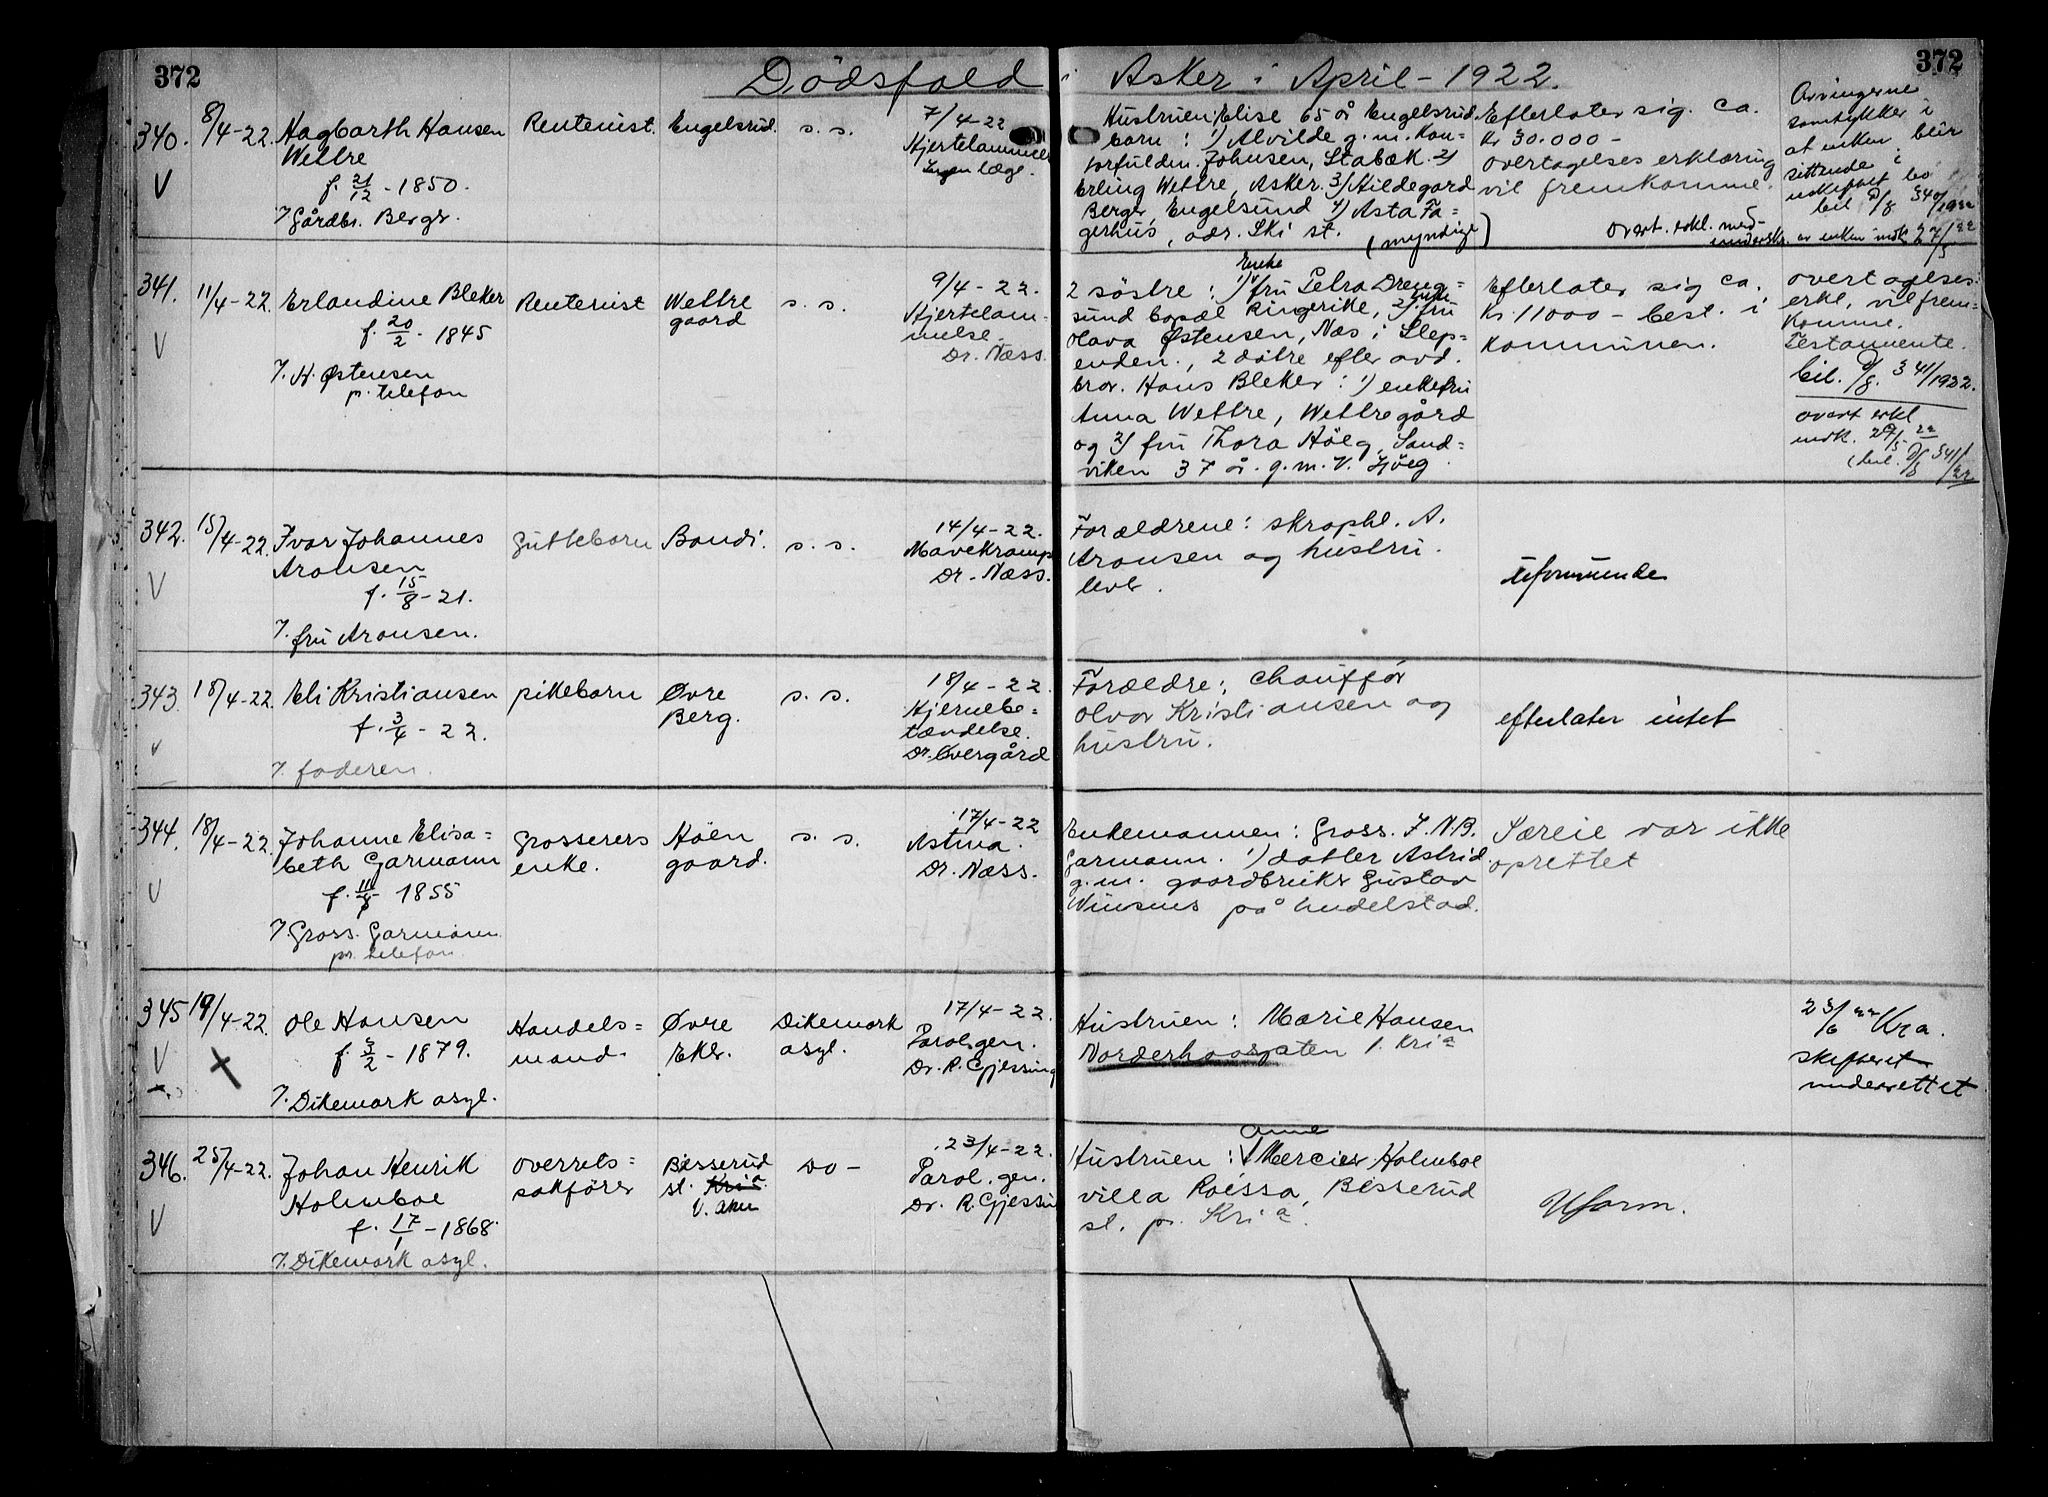 372
Dödsfald i Asker i April - 1922.
372
340.
8/4-22.
Hagbarth Hansen
Wettre
f. 21/12 - 1850.
7. Gårdbr. Berger.
Rentenist.
Engelsrud.
s. s.
7/4-22
Hjertelammelse
Ingen læge.
Hustruen: Elise 65 år Engelsrud.
barn: 1) Alvilde g. m. Kon-
torfuldm. Johnsen, Stabæk. 2)
Erling Wettre, Asker. 3) Hildegard
Berger, Engelsund 4) Asta Fa=
gerhus, adr. Ski st. (myndige)
Efterlater sig. ca.
Kr 30.000 -
overtagelses erklæring
vil fremkomme.
overt. erkl. med
underskr. av enken indk 27/5 22
Arvingerne
samtykker i
at enken blir
sittende i
uskiftet bo
bil D/8 340/1922
341.
11/4-22.
Erlandine Bleker
f. 20/2 - 1845
7. H. Østensen
p. telefon
Rentenist
Wettre
gaard
s. s.
9/4-22.
Hjertelam-
melse.
Dr. Næss.
2 söstre: 1) Enke
fru Petra Dreng=
sund bopæl Ringerike, 2) fru
Olava Østensen, Næs i Slep=
enden., 2 døtre efter avd.
bror. Hans Bleker: 1) enkefru
Anna Wettre, Wettregård
og 2) fru Thora Höeg, Sand=
viken 37 år. g. m. V. Höeg.
Efterlater sig ca.
Kr. 11000 - best. i
Kommunen.
overtagelses
erkl. vil frem=
komme.
Testamente.
bil. D/8. 341/1922.
overt erkl
indk. 27/5 22
(bil. D/8 341/22
342.
15/4-22.
Ivar Johannes
Aronsen
f. 15/8 - 21.
7. fru Aronsen.
Guttebarn
Bondi.
s. s.
14/4-22.
Mavekrampe
Dr. Næss.
Forældrene: skraphl. A.
Aronsen og hustru.
lever.
uformuende
343.
18/4-22.
Eli Kristiansen
f. 3/4 - 22.
7. faderen.
pikebarn
Øvre
Berg.
s. s.
18/4-22.
Hjernebe=
tændelse.
Dr. Overgård
Forældre: Chauffør
Olvar Kristiansen og
hustru.
efterlater intet
344.
18/4-22.
Johanne Elisa=
beth Garmann
f. 11/8 1855
7. Gross. Garmann
pr. telefon.
Grosserers
enke.
Höen
gaard.
s. s.
17/4-22
Astma.
Dr. Næss.
Enkemannen: Gross. J. N. B.
Garmann. 1) datter Astrid
g. m. gaardbruker Gustav
på hudelstad.
Særeie var ikke
oprettet
345
19/4-22.
Ole Hansen
f. 3/2 - 1879.
7. Dikemark asyl.
Handels=
mand.
Øvre
Eker.
Dikemark
asyl.
17/4-22.
Paral. gen.
Dr. R. Gjessing
Hustruen: Marie Hansen
Norderhovgaten 1. Kria
23/6 22 Kra.
skifteret
underrettet
346.
25/4-22.
Johan Henrik
Holmboe
f. 17/1 - 1868.
7. Dikemark asyl.
Overrets=
sakförer
Besserud
st. Kria
V. Aker
Do -
23/4-22.
Paral. gen.
Dr. R. Gjessing
Hustruen: Anne Mercier Holmboe
villa Roessa, Besserud
st. pr. Kria.
Uform.